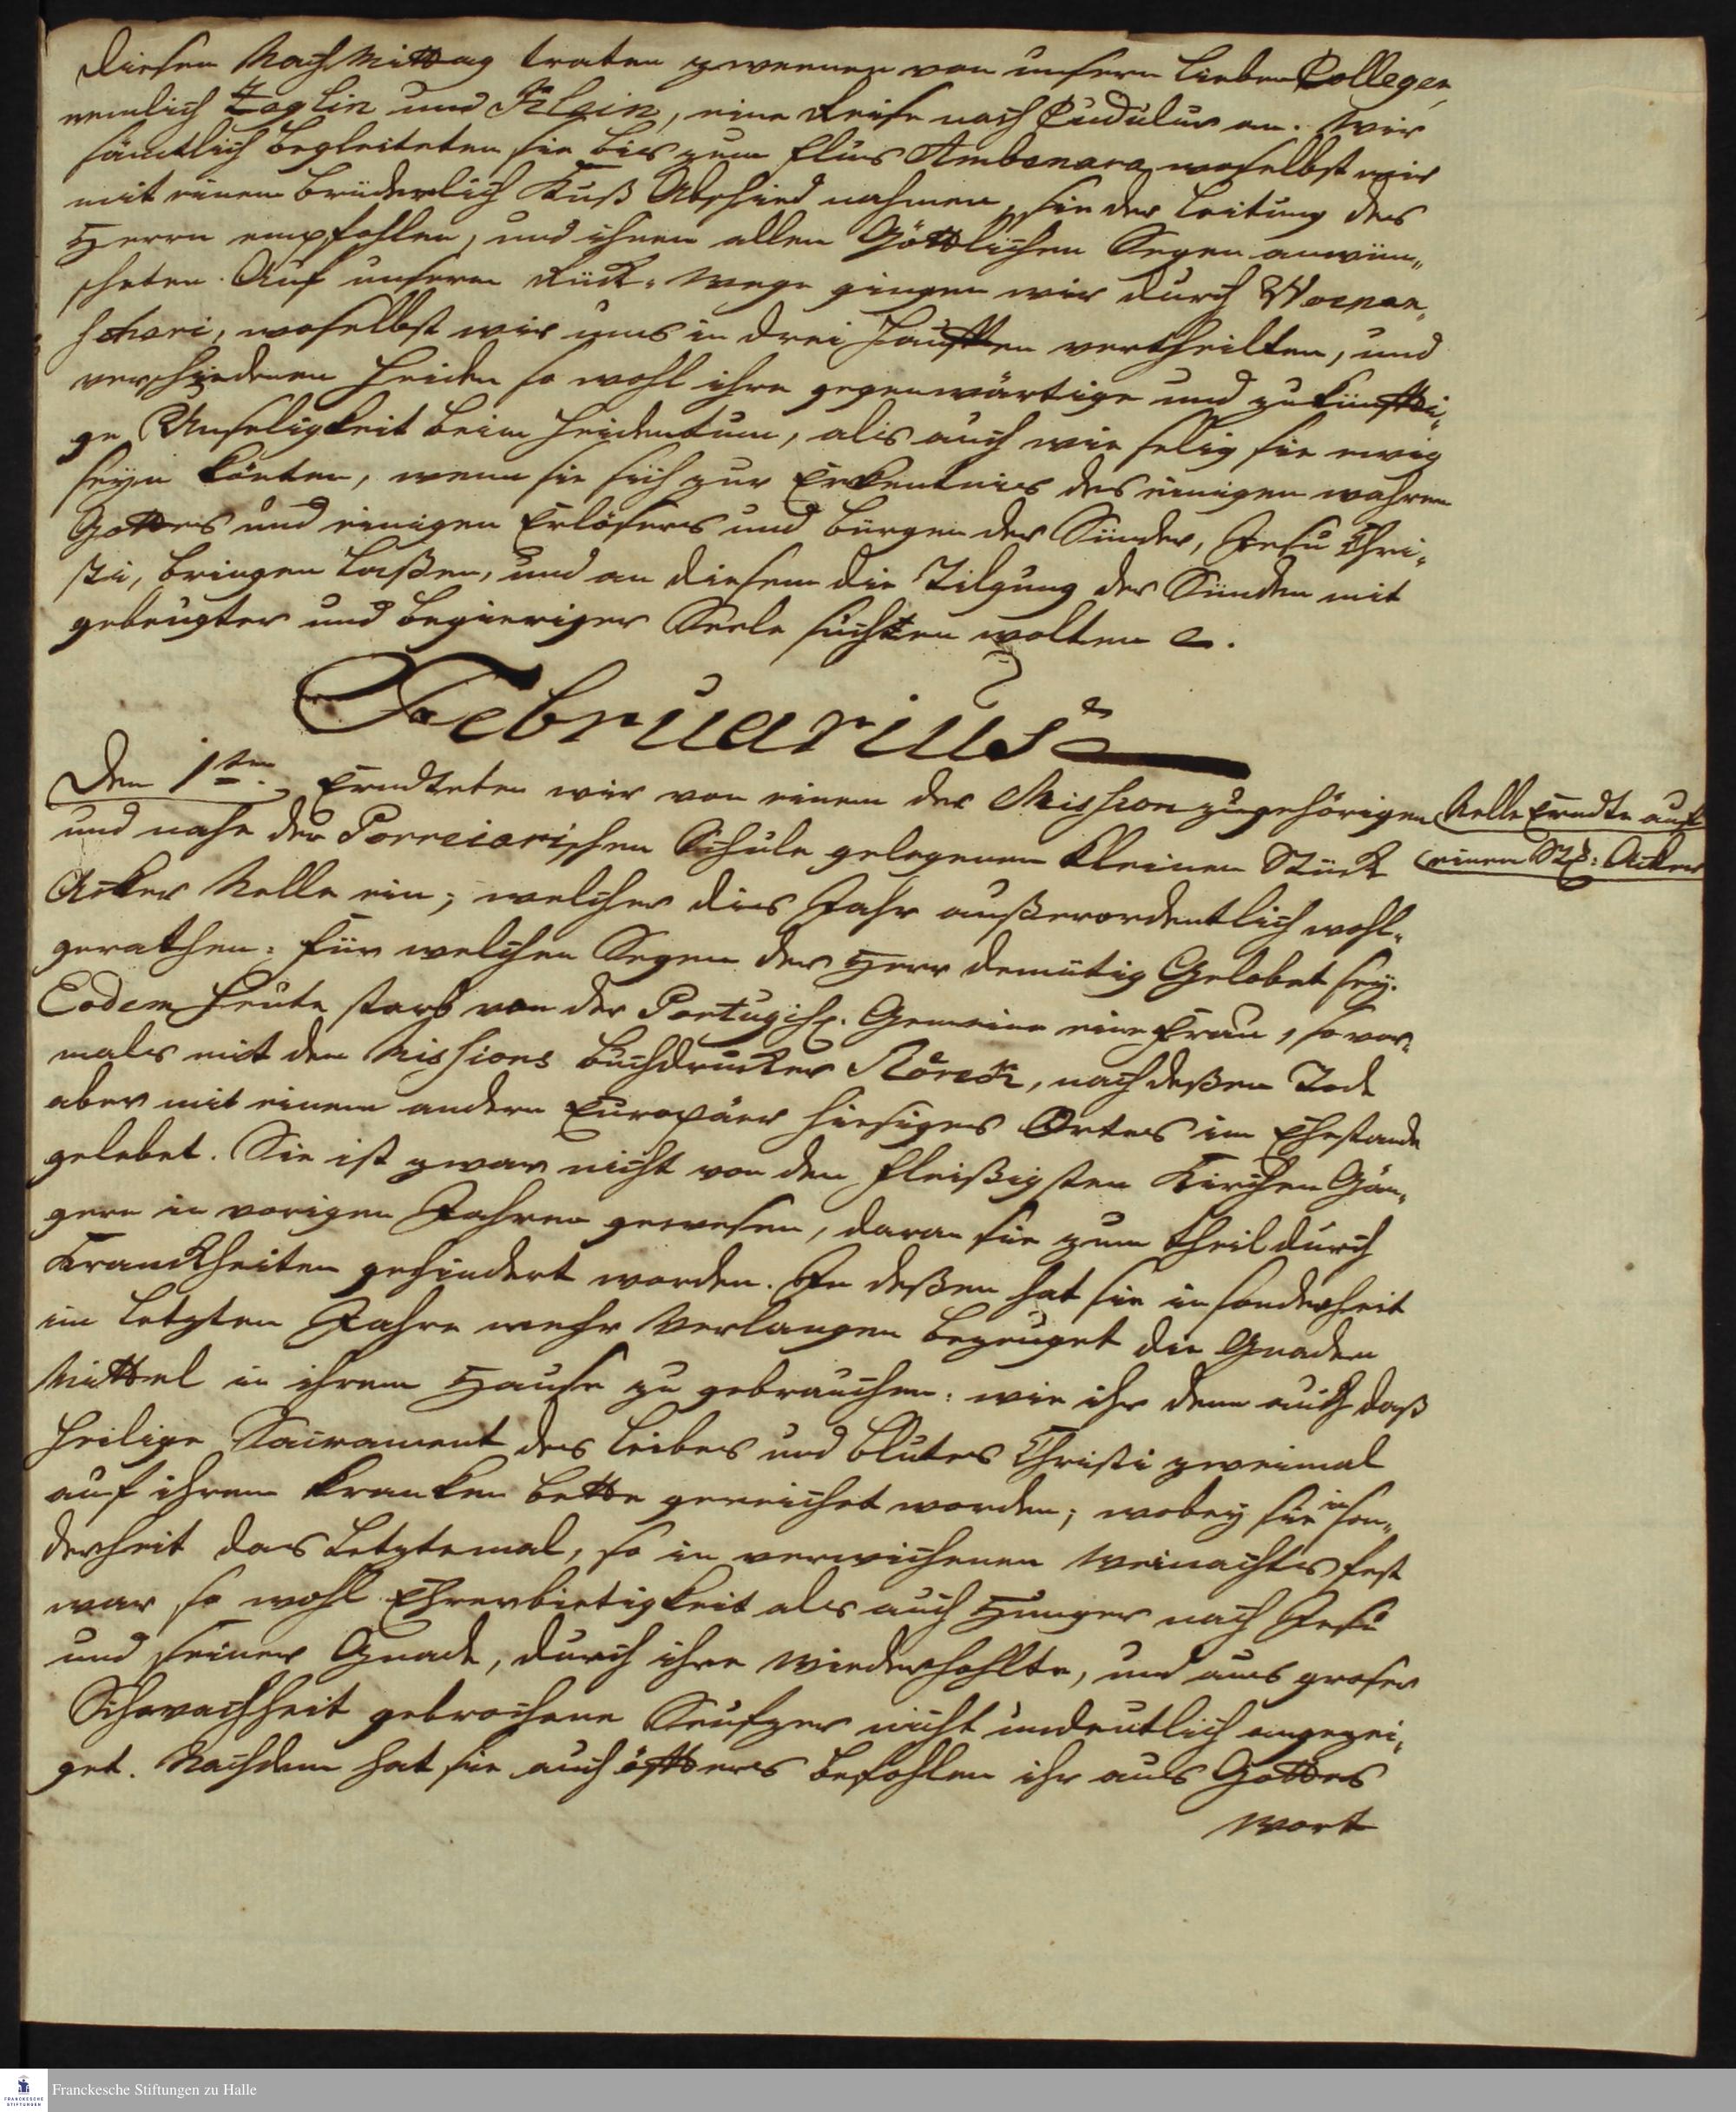 Diesen NachMittag traten zweenen von unsern lieben Collegen,
nemlich Zeglin und Klein, eine Reise nach Cudulur an. Wir
sämtlich begleiteten sie bis zum Fluß Ambanara, woselbst wir
mit einem brüderlich Kuß Abschied nahmen, sie der Leitung des
Herrn empfohlen, und ihnen allen Göttlichen Segen anwün„
scheten. Auf unserm Rück-Wege gingen wir durch
schari, woselbst wir uns in drei Hauffen vertheilten, und
verschiedenen Heiden so wohl ihre gegenwärtige und zukünffti„
ge Unseligkeit beim Heidentum, als auch wie selig sie ewig
seyn könten, wenn sie sich zur Erkentnis des einigen wahren
Gottes und einigen Erlösers und Bürgen der Sünder, Jesu Chri„
sti, bringen laßen, und an diesem die Tilgung der Sünden mit
gebeugter und begieriger Seele suchten wolten
Februarius
Den 1ten. Erndteten wir von einem der Mission zugehörigen
und nahe der Porreiarischen Schule gelegenen kleinen Stück
Acker Nelle ein; welcher dies Jahr außerordentlich wohl„
gerathen: für welchen Segen der Herr demütig Gelobet sey.
Nelle Erndte auf
einem St: Acker
Eodem Heute starb von der Portugis. Gemeine eine Frau, so vor„
mals mit dem Missions Buchdrucker, nach deßen Tode
aber mit einem andern Europäer hiesiges Ortes im Ehestande
gelebet. Sie ist zwar nicht von den fleißigsten Kirchen Gän„
gern in vorigen Jahren gewesen, daran sie zum theil durch
Kranckheiten gehindert worden. In deßen hat sie insonderheit
im letzten Jahre mehr Verlangen bezeuget die Gnaden
Mittel in ihrem Hause zu gebrauchen: wie ihr denn auch daß
Heilige Sacrament des Leibes und Blutes Christi zweimal
auf ihrem Kranken Bette gereichet worden; wobey sie inson„
derheit das letztemal, so in verwichenen Weinachts fest
war so wohl Ehrerbietigkeit als auch Hunger nach Jesu
und seiner Gnade, durch ihre wiederhohlte, und aus grosser
Schwachheit gebrochene Seufzer nicht undeutlich angezei„
get. Nachdem hat sie auch öffters befohlen ihr aus Gottes
Wort
Franckesche Stiftungen zu Halle
FRANCKESCHE
STIFTUNGEN